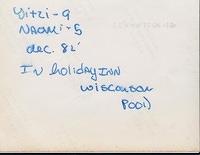 Yitzi - 9
Naomi - 5
dec. 82'
In holiday INN
wisconson
Pool